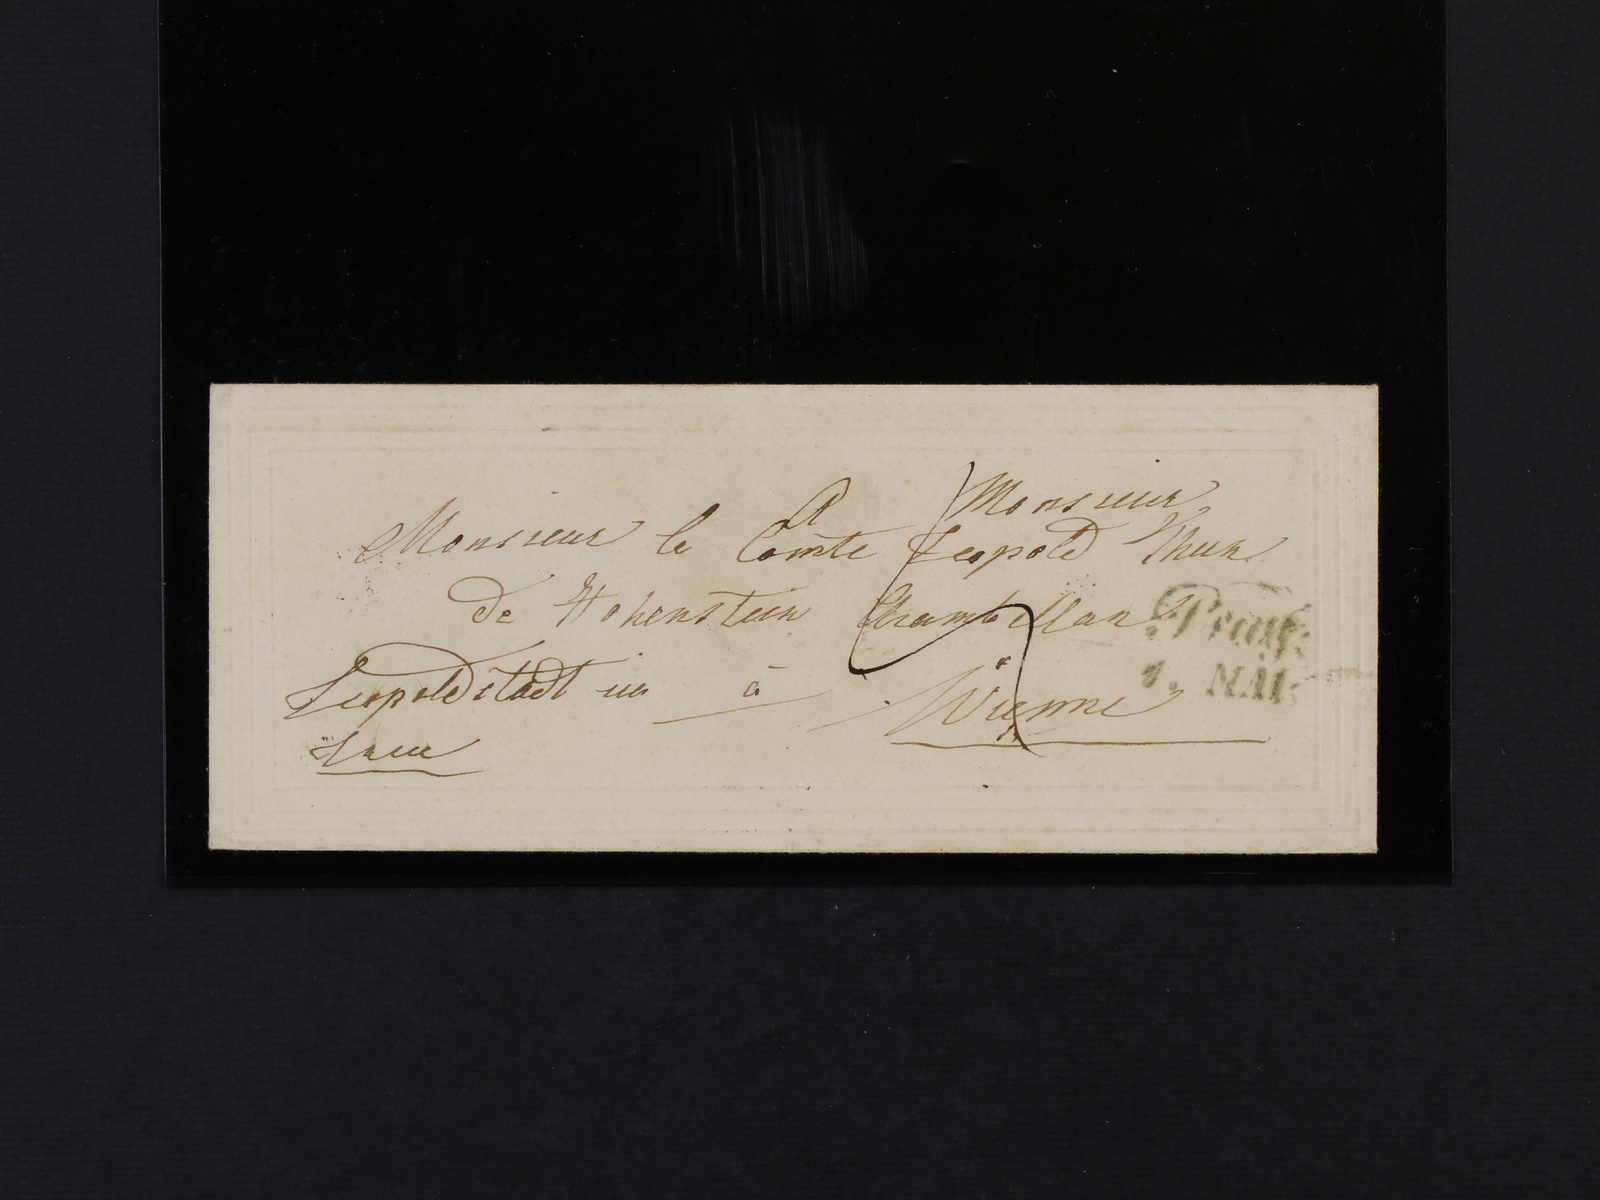 A Monsieur
Monsieur le Comte Leopold Thun
de Hohenstein Chambellan
Leopoldstadt
à Vienne
Prag.
1. MAI.